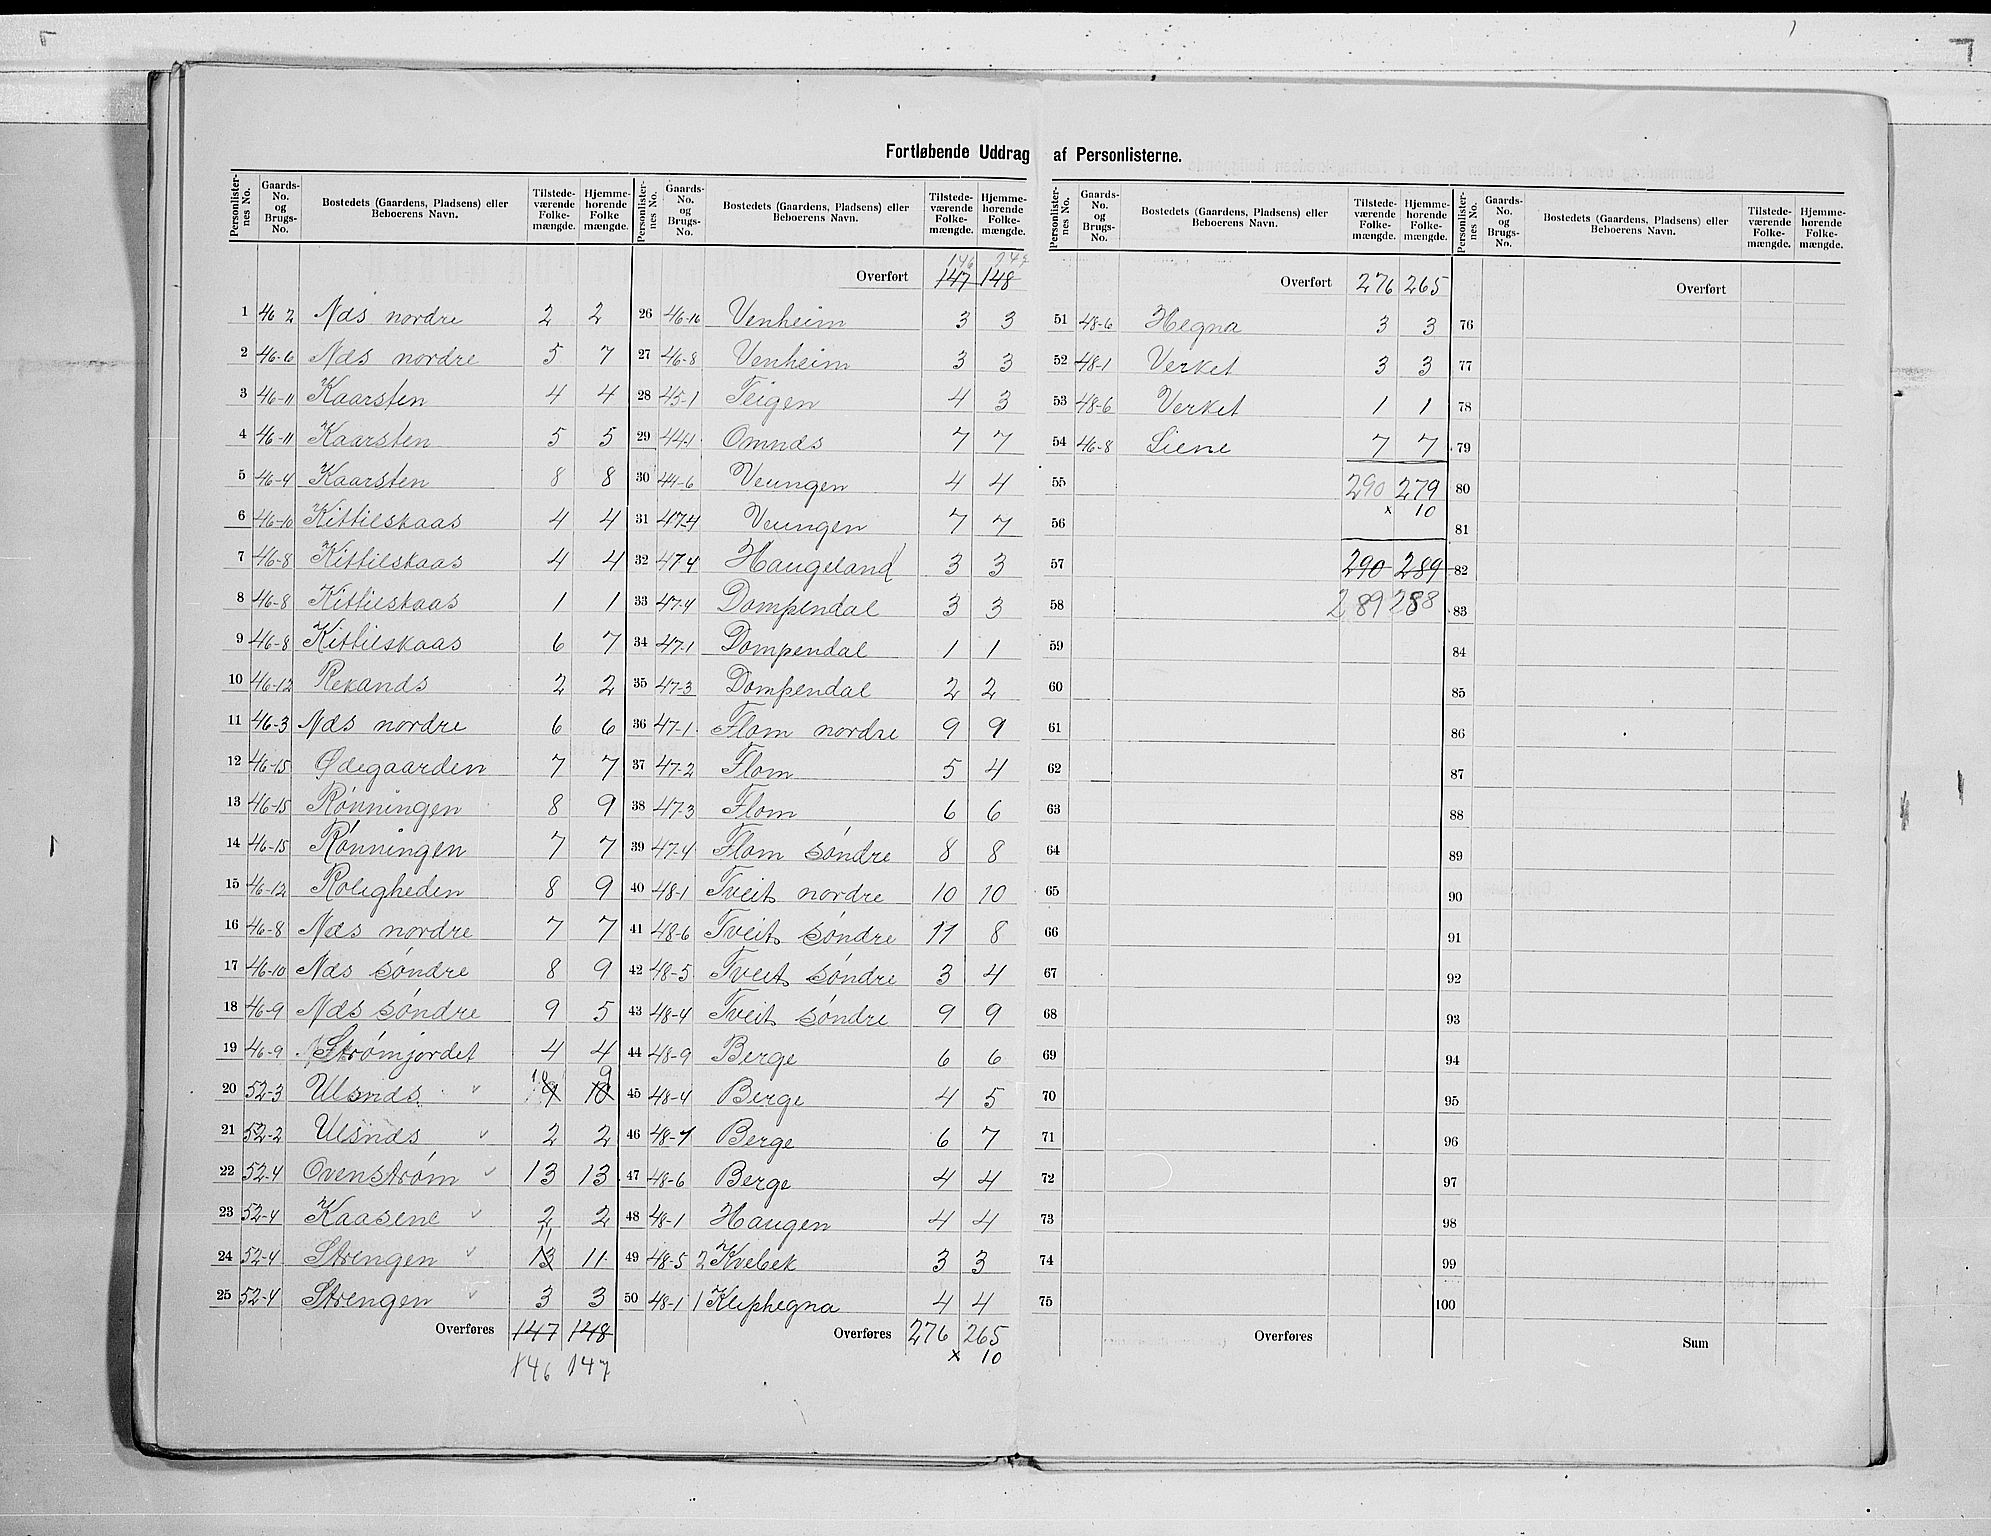 Fortløbende Uddrag af Personlisterne.
Personlister-nes No. Gaards-No. og Brugs-No. Bostedets (Gaardens, Pladsens) eller Beboerens Navn. Tilstede-værende Folke-mængde. Hjemme-hørende Folke mængde.
1 46 2 Næs nordre 2 2
2 46-6 Næs nordre 5 7
3 46-11 Kaarsten 4 4
4 46-11 Kaarsten 5 5
5 46-4 Kaarsten 8 8
6 46-10 Kittilskaas 4 4
7 46-8 Kittilskaas 4 4
8 46-8 Kittilskaas 1 1
9 46-8 Kittilskaas 6 7
10 46-12 Rekands 2 2
11 46-3 Næs nordre 6 6
12 46-15 Ødegaarden 7 7
13 46-15 Rønningen 8 9
14 46-15 Rønningen 7 7
15 46-12 Roligheden 8 9
16 46-8 Næs nordre 7 7
17 46-10 Næs søndre 8 9
18 46-9 Næs søndre 9 5
19 46-9 Strømjordet 4 4
20 52-3 Ulsnæs 10 9
21 52-2 Ulsnæs 2 2
22 52-4 Ovenstrøm 13 13
23 52-4 Kaasene 2 2
24 52-4 Strengen 13 11 11
25 52-4 Strengen 3 3
Overføres 147 148
146 147
Personlister-nes No. Gaards-No. og Brugs-No. Bostedets (Gaardens, Pladsens) eller Beboerens Navn. Tilstede-værende Folke-mængde. Hjemme-hørende Folke-mængde.
146 147
Overført 147 148
26 46-16 Venheim 3 3
27 46-8 Venheim 3 3
28 45-1 Teigen 4 3
29 44-1 Omnæs 7 7
30 44-6 Veungen 4 4
31 47-4 Veungen 7 7
32 47-4 Haugeland 3 3
33 47-4 Dompendal 3 3
34 47-1 Dompendal 1 1
35 47-3 Dompendal 2 2
36 47-1 Flom nordre 9 9
37 47-2 Flom 5 4
38 47-3 Flom 6 6
39 47-4 Flom søndre 8 8
40 48-1 Tveit nordre 10 10
41 48-6 Tveit søndre 11 8
42 48-5 Tveit søndre 3 4
43 48-4 Tveit søndre 9 9
44 48-9 Berge 6 6
45 48-4 Berge 4 5
46 48-7 Berge 6 7
47 48-6 Berge 4 4
48 48-1 Haugen 4 4
49 48-5 2 Kvebek 3 3
50 48-1 1 Kliphegna 4 4
Overføres 276 265
x 10
Personlister-nes No. Gaards-No. og Brugs-No. Bostedets (Gaardens, Pladsens) eller Beboerens Navn. Tilstede-værende Folke-mængde. Hjemme-hørende Folke-mængde.
Overført 276 265
51 48-6 Hegna 3 3
52 48-1 Verket 3 3
53 48-6 Verket 1 1
54 46-8 Liene 7 7
55 290 279
56 x 10
57 290 289
58 289 288
59
60
61
62
63
64
65
66
67
68
69
70
71
72
73
74
75
Overføres
Personlister-nes No. Gaards-No. og Brugs-No. Bostedets (Gaardens, Pladsens) eller Beboerens Navn. Tilstede-værende Folke-mængde. Hjemme-hørende Folke-mængde.
Overført
76
77
78
79
80
81
82
83
84
85
86
87
88
89
90
91
92
93
94
95
96
97
98
99
100
Sum